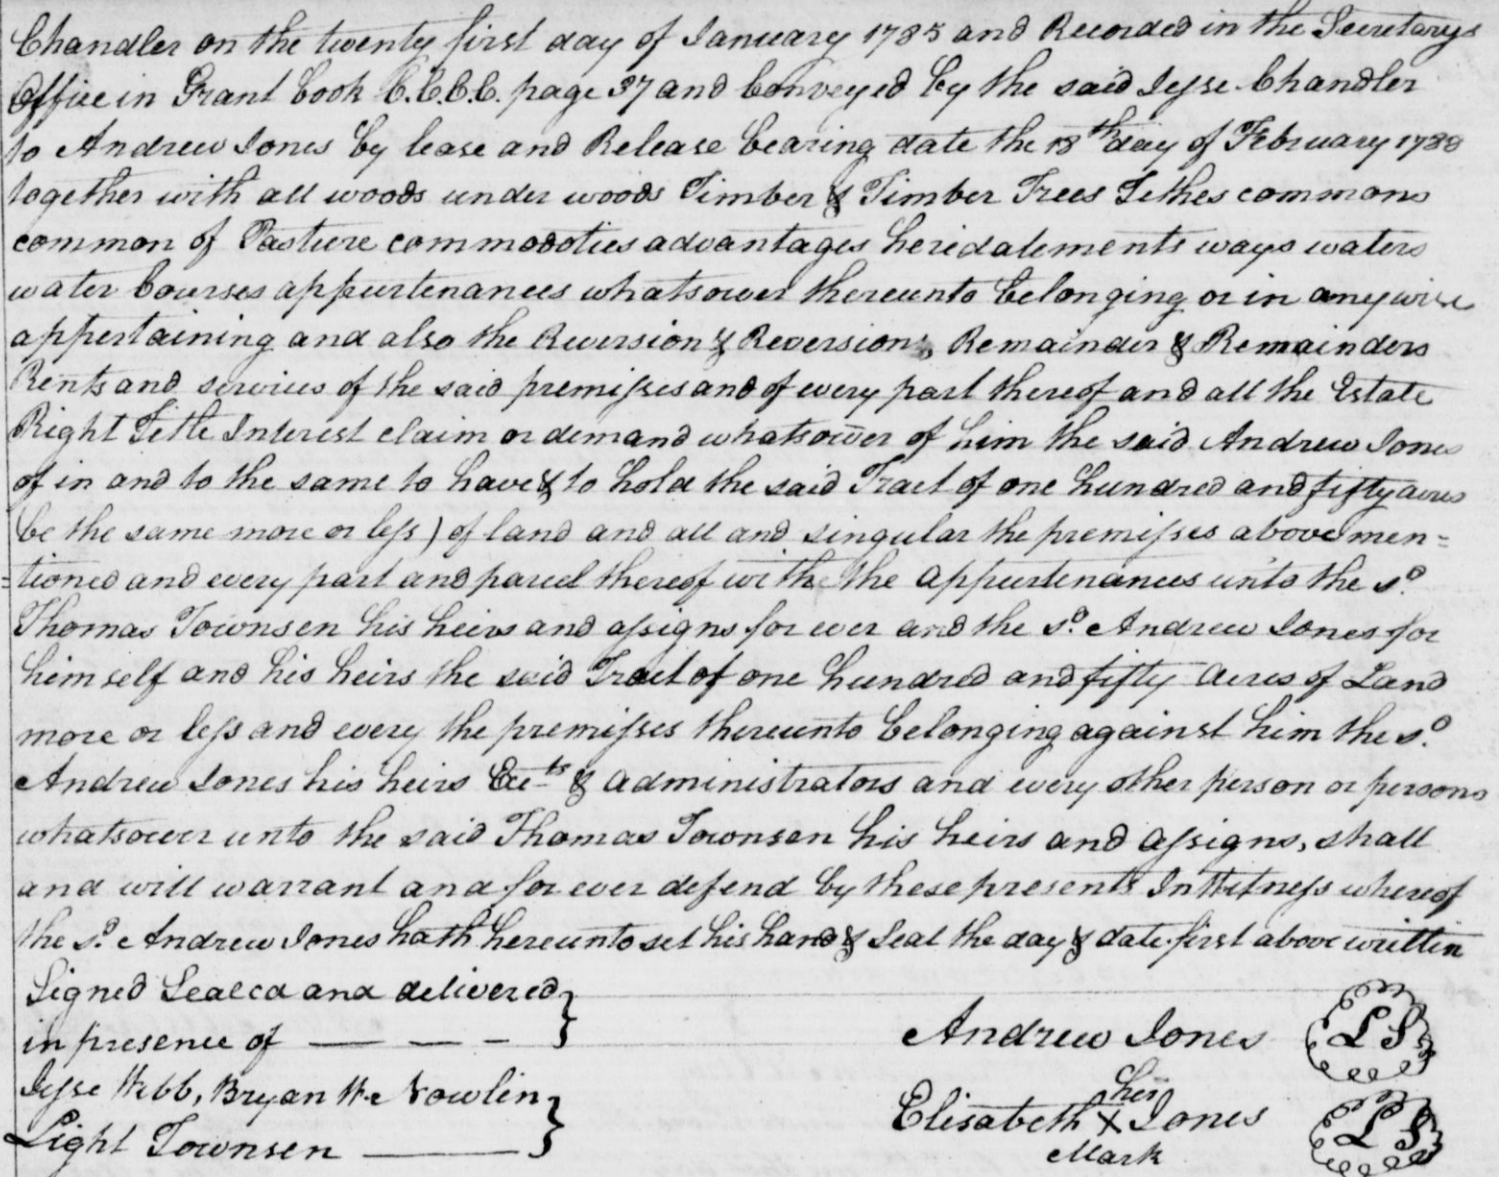 Chandler on the twenty first day of January 1785 and Recorded in the Secretarys
Office in Grant Book C.C.C.C. page 37 and Conveyed by the said Jesse Chandler
to Andrew Jones by lease and Release bearing date the 18th day of February 1788
together with all woods under woods Timber & Timber Trees Tethes commons
common of Pasture commodoties advantages heridatements ways waters
water Courses appurtenances whatsoever thereunto belonging or in anywise
appertaining and also the Reversion & Reversions, Remainder & Remainders
Rents and services of the said premisses and of every part thereof and all the Estate
Right Title Interest claim or demand whatsoever of him the said Andrew Jones
of in and to the same to have & to hold the said Tract of one hundred and fifty acres
(be the same more or less) of land and all and singular the premisses above men=
=tioned and every part and parcel thereof with the appurtenances unto the sd.
Thomas Townsen his heirs and assigns for ever and the sd. Andrew Jones for
himself and his heirs the said Tract of one hundred and fifty Acres of Land
more or less and every the premisses thereunto belonging against him the sd.
Andrew Jones his heirs & administrators and every other person or persons
whatsoever unto the said Thomas Townsen his heirs and assigns, shall
and will warrant and for ever defend by these presents In Witness whereof
the sd. Andrew Jones hath hereunto set his hand & Seal the day & date first above written
Signed Sealed and delivered }
in presence of — — —
Jesse Webb, Bryan W. Nowlin }
Light Townsen ———
Andrew Jones LS
her
Elisabeth X Jones LS
Mark